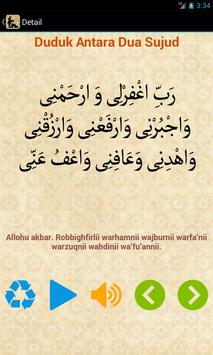 3:34
Detail
Duduk Antara Dua Sujud
رَبِّ اغْفِرْلِى وَ ارْحَمْنِى
وَاجْبُرْنِى وَارْفَعْنِى وَارْزُقْنِى
وَاهْدِنِى وَعَافِنِى وَاعْفُ عَنِّى
Allohu akbar. Robbighfirlii warhamnii wajburnii warfa'nii
warzuqnii wahdinii wa'fu'annii.